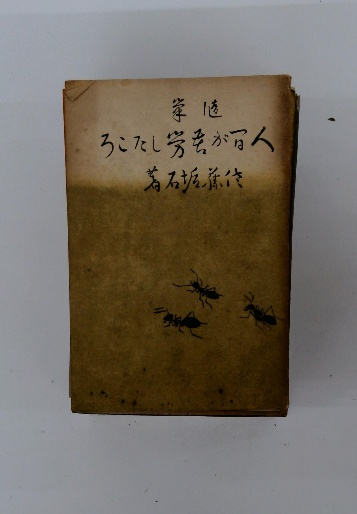 随筆
人間が苦労したころ
佐藤垢石著